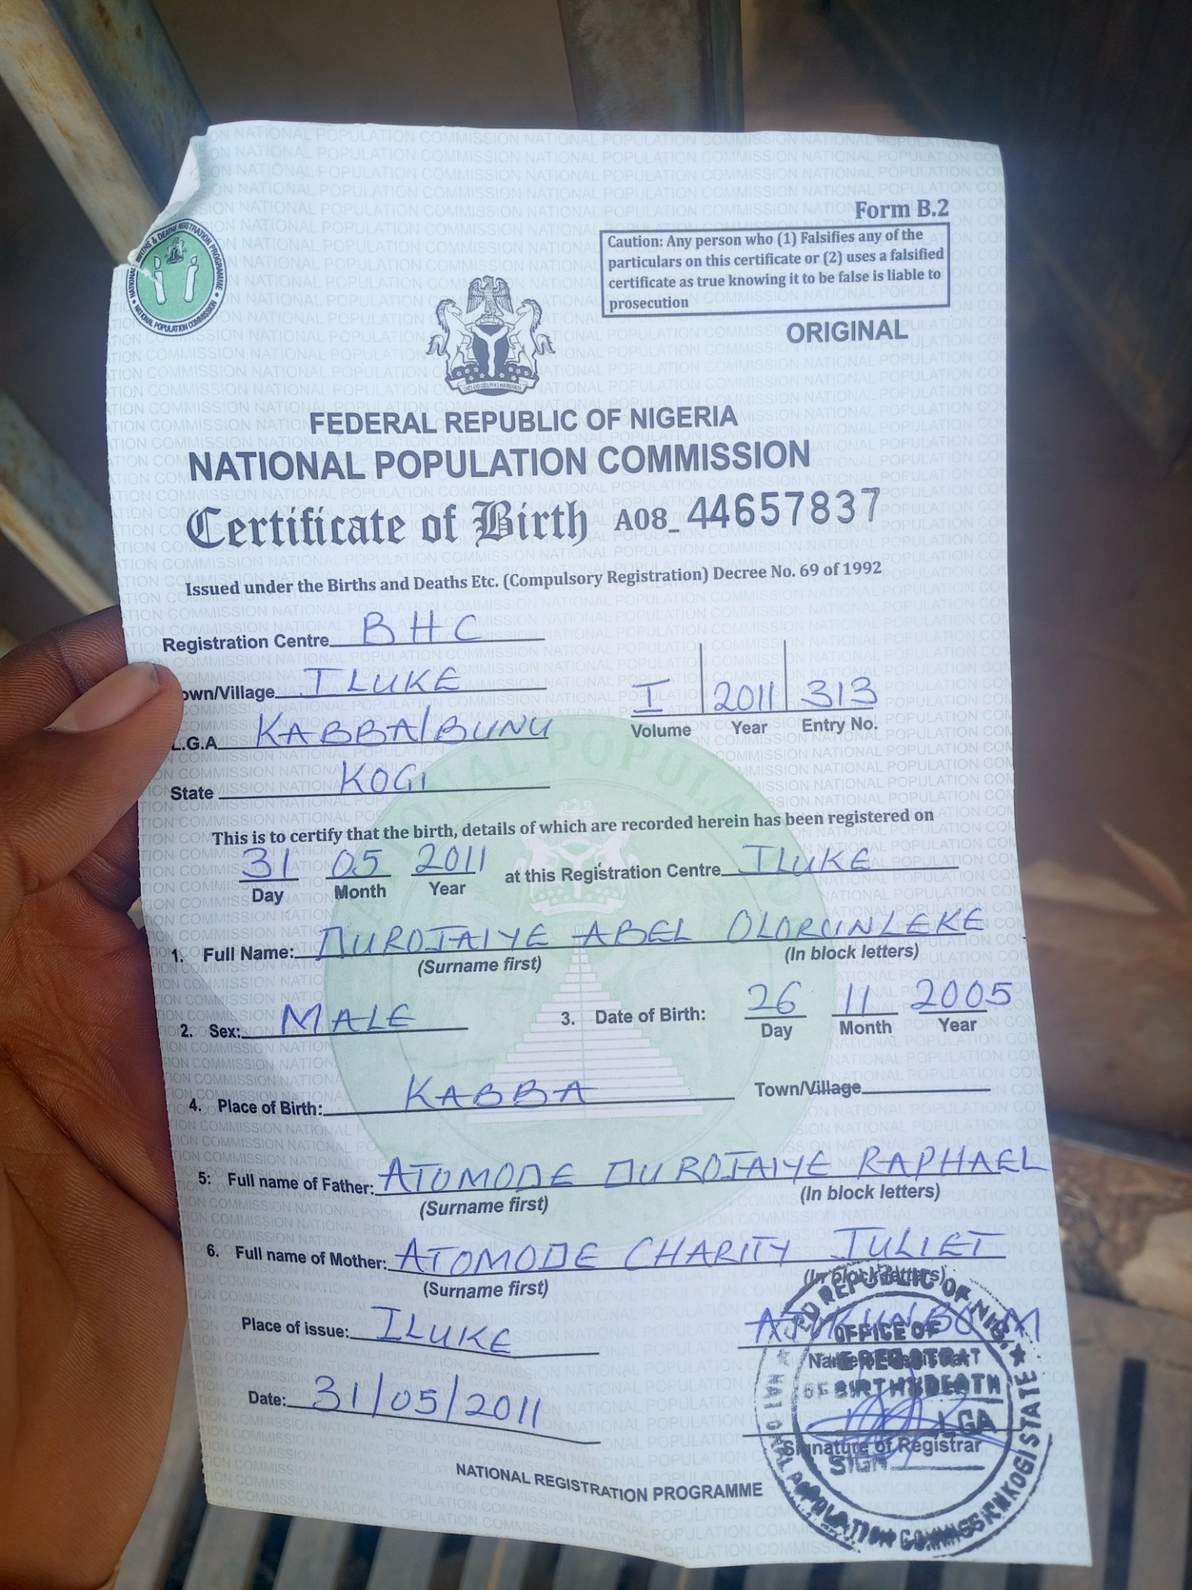 Form B.2
Caution: Any person who (1) Falsifies any of the
particulars on this certificate or (2) uses a falsified
certificate as true knowing it to be false is liable to
prosecution
ORIGINAL
FEDERAL REPUBLIC OF NIGERIA
NATIONAL POPULATION COMMISSION
Certificate of Birth A08_ 44657837
Issued under the Births and Deaths Etc. (Compulsory Registration) Decree No. 69 of 1992
Registration Centre BHC
own/Village ILUKE
L.G.A KABBA/BUNU
State KOGI
I 2011 313
Volume Year Entry No.
This is to certify that the birth, details of which are recorded herein has been registered on
31 05 2011 at this Registration Centre ILUKE
Day Month Year
1. Full Name: DUROJAIYE ABEL OLORUNLEKE
(Surname first) (In block letters)
2. Sex: MALE 3. Date of Birth: 26 11 2005
Day Month Year
4. Place of Birth: KABBA Town/Village
5: Full name of Father: ATOMODE DUROJAIYE RAPHAEL
(Surname first) (In block letters)
6. Full name of Mother: ATOMODE CHARITY JULIET
(Surname first) (In block letters)
Place of issue: ILUKE
Date: 31/05/2011
Signature of Registrar
OFFICE OF
BIRTH & DEATH
LGA
SIGN
NATIONAL POPULATION COMMISSION KOGI STATE
NATIONAL REGISTRATION PROGRAMME